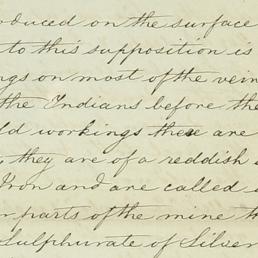 oduced on the surface
to this supposition is
ngs on most of the vein
the Indians before the
ld workings these are
, they are of a reddish
Iron and are called
r parts of the mine th
Sulphurate of Silver